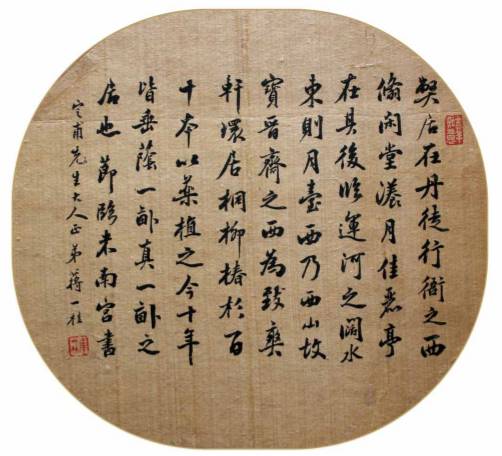 弊居在丹徒行衙之西
翛閒堂漾月佳麗亭
在其後臨運河之闊水
東則月臺西乃西山故
寶晉齋之西為致爽
軒環居桐柳椿杉百
十本以藥植之今十年
皆垂蔭一畝真一畝之
居也 節臨米南宮書
定甫先生大人正 弟蔣一桂